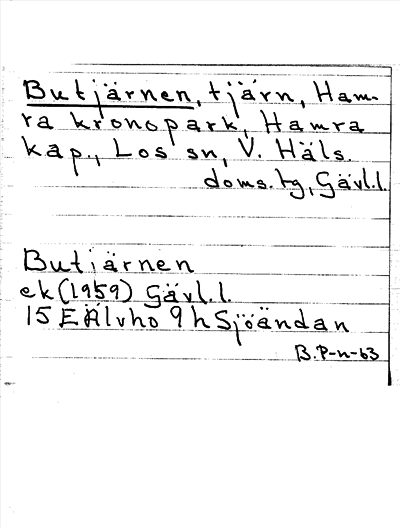 Butjärnen, tjärn, Ham-
ra kronopark, Hamra
kap., Los sn, V. Häls.
doms. tg, Gävl.l.
Butjärnen
ek (1959) Gävl.l.
15 E Älvho 9 h Sjöändan
B.P-n-63